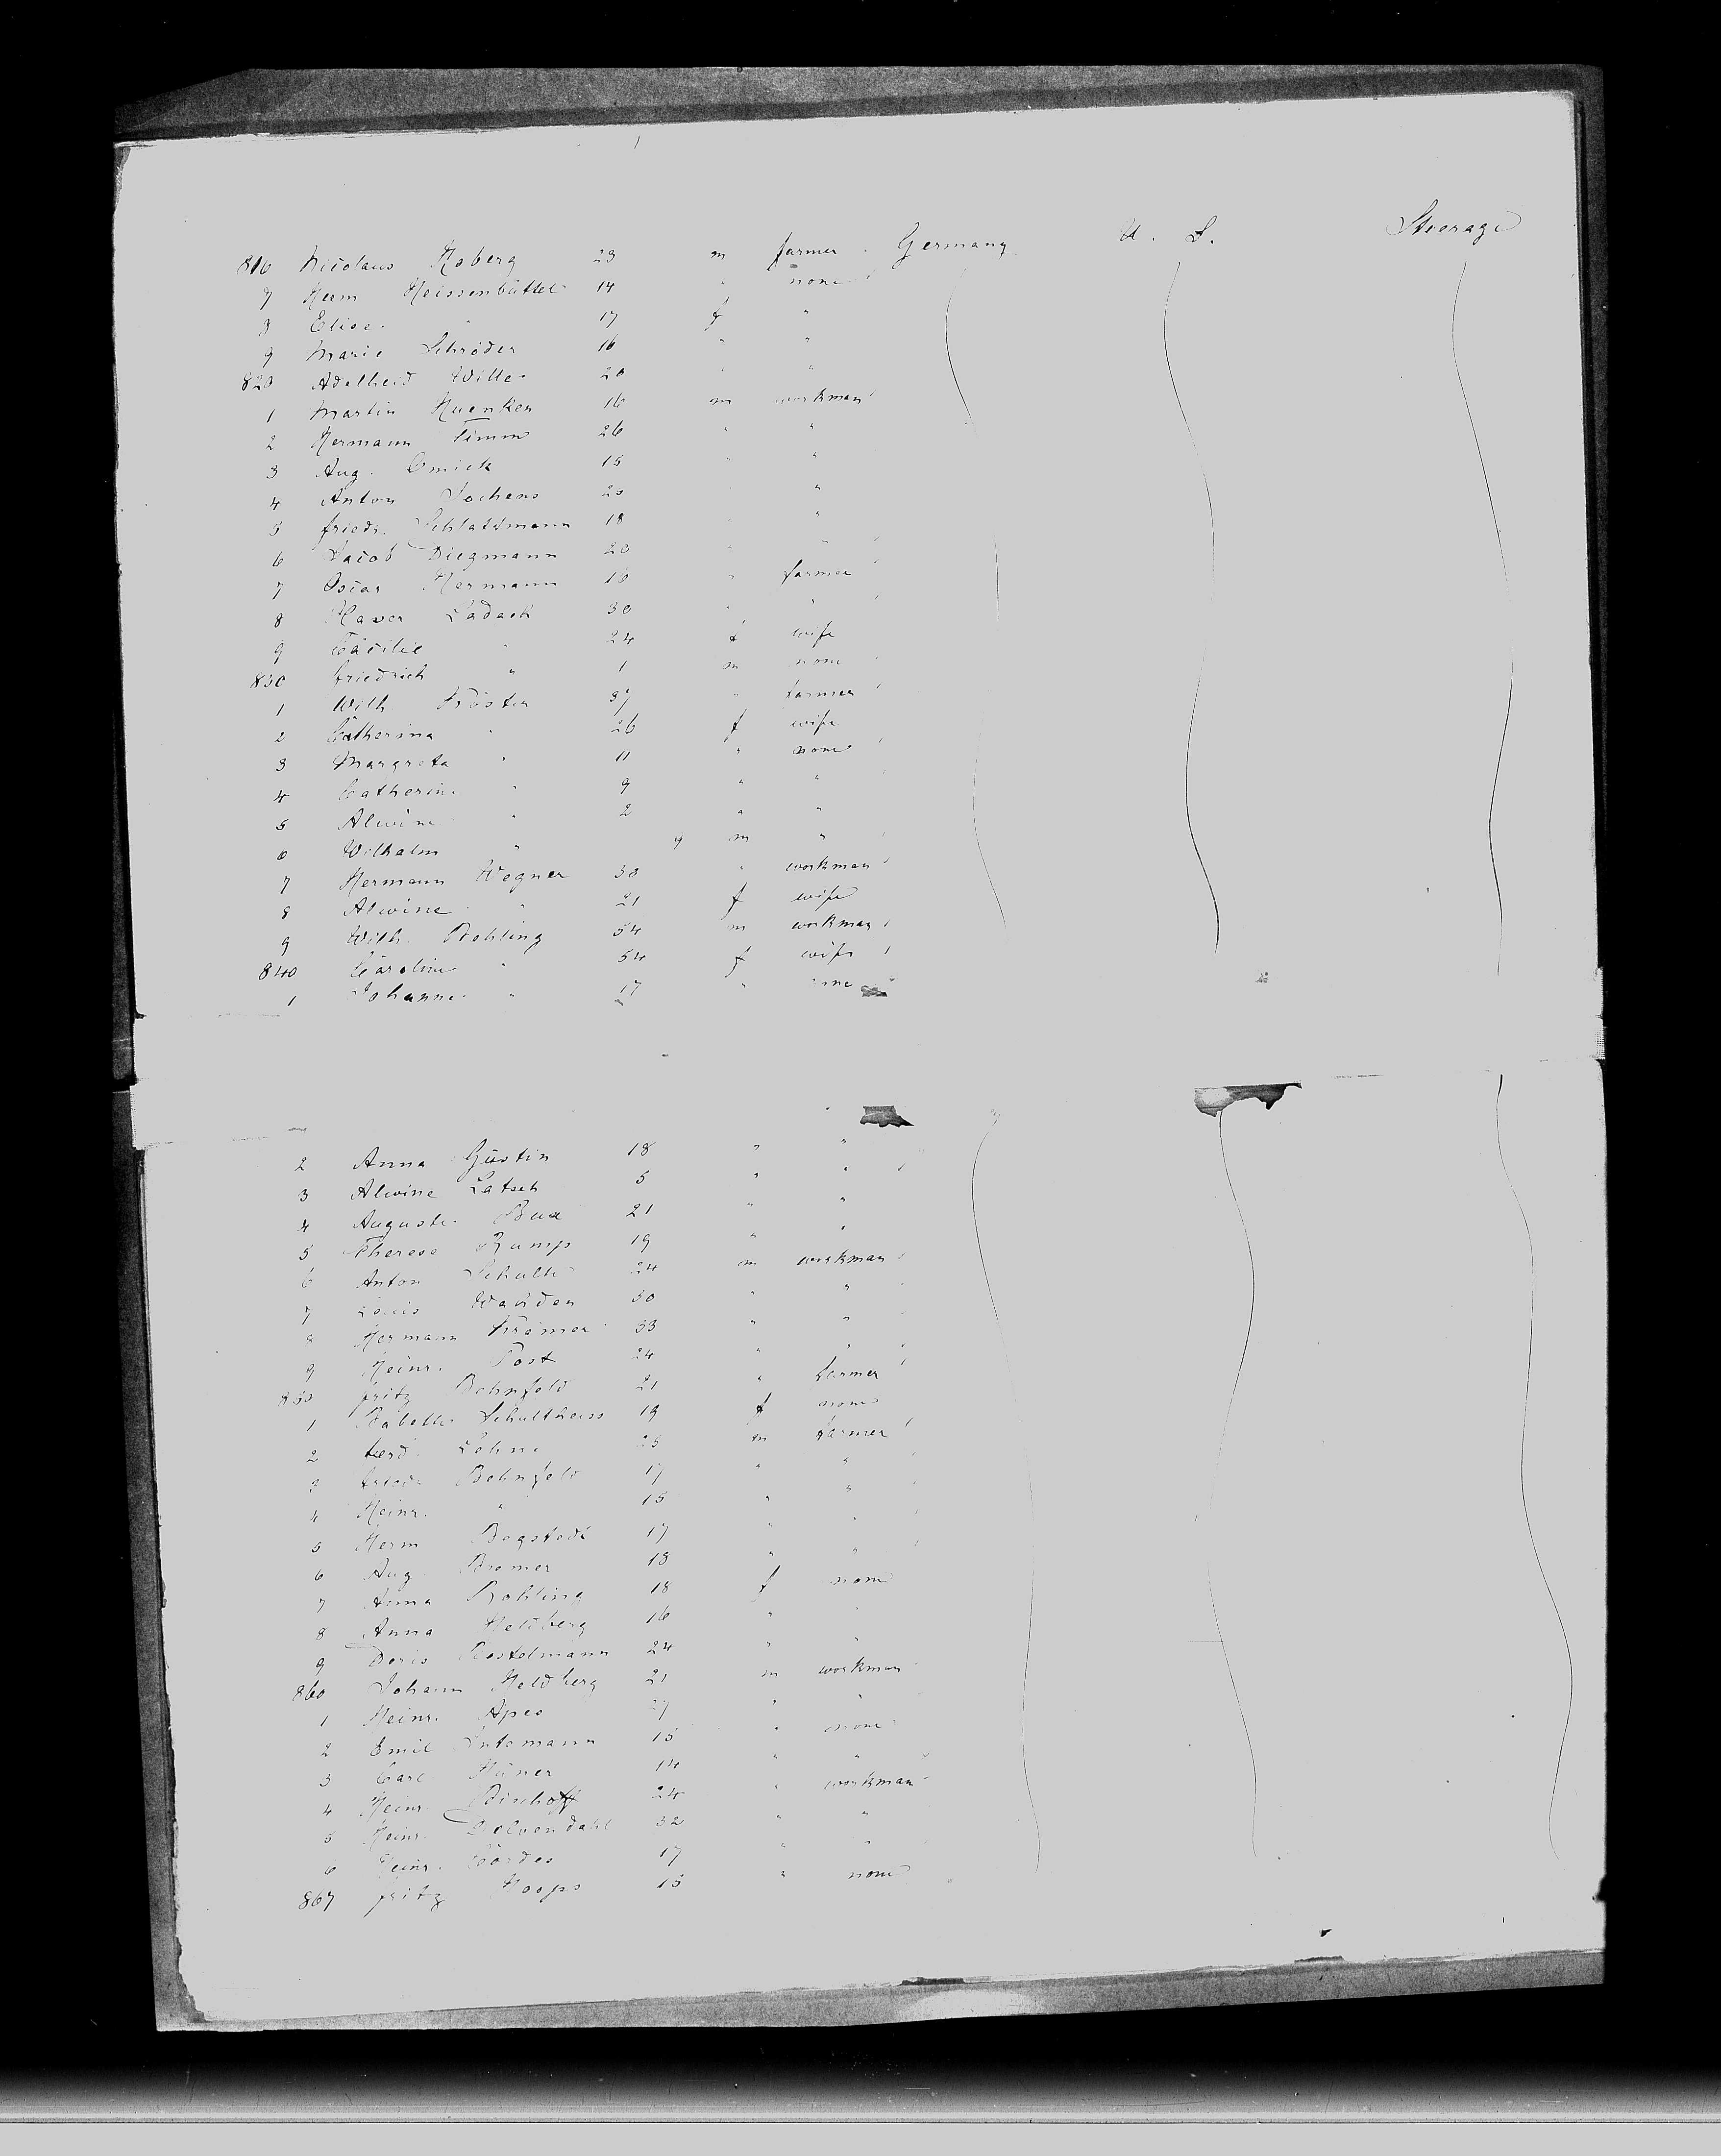 816 Nicolaus Roberg 23 m farmer Germany U. S. Steerage
7 Herm Meissenbüttel 14 " none
8 Elise " 17 f "
9 Marie Schröder 16 " "
820 Adelheid Wille 20 " "
1 Martin Huenken 16 m workman
2 Hermann Timm 26 " "
3 Aug. 15 " "
4 Anton Jochens 23 " "
5 friedr. 18 " "
6 Jacob Diegmann 20 " "
7 Oscar Hermann 16 " farmer
8 Xaver Ladack 30 " "
9 Cäcilie " 24 f wife
830 friedrich " 1 m none
1 Wilh. Köster 37 " farmer
2 Catherina " 26 f wife
3 Margreta " 11 " none
4 Catherine " 9 " "
5 Alwine " 2 " "
6 Wilhelm " 9 m "
7 Hermann Wegner 30 " workman
8 Alwine " 21 f wife
9 Wilh. Behling 54 m workman
840 Caroline " 54 f wife
1 Johanne " 17 "
2 Anna Gustin 18 " "
3 Alwine Latsch 5 " "
4 Auguste Bux 21 " "
5 Therese Rump 19 " "
6 Anton Schulte 24 m workman
7 Louis 30 " "
8 Hermann Krämer 33 " "
9 Heinr. Post 24 " "
850 fritz Behnfeld 21 " farmer
1 Babette Schultheiss 19 f none
2 ferd. Lehne 25 m farmer
3 friedr. Behnfeld 17 " "
4 Heinr. " 15 " "
5 Herm Bogstedt 17 " "
6 Aug. Bremer 18 " "
7 Anna Rohling 18 f none
8 Anna Heldberg 16 " "
9 Doris Postelmann 24 " "
860 Johann Heldberg 21 m workman
1 Heinr. Apel 27 " "
2 Emil Intemann 15 " none
3 Carl Hüner 14 " "
4 Heinr. Bischoff 24 " workman
5 Heinr. Delvendahl 32 " "
6 Heinr. Cordes 17 " "
867 fritz Hoops 15 " none